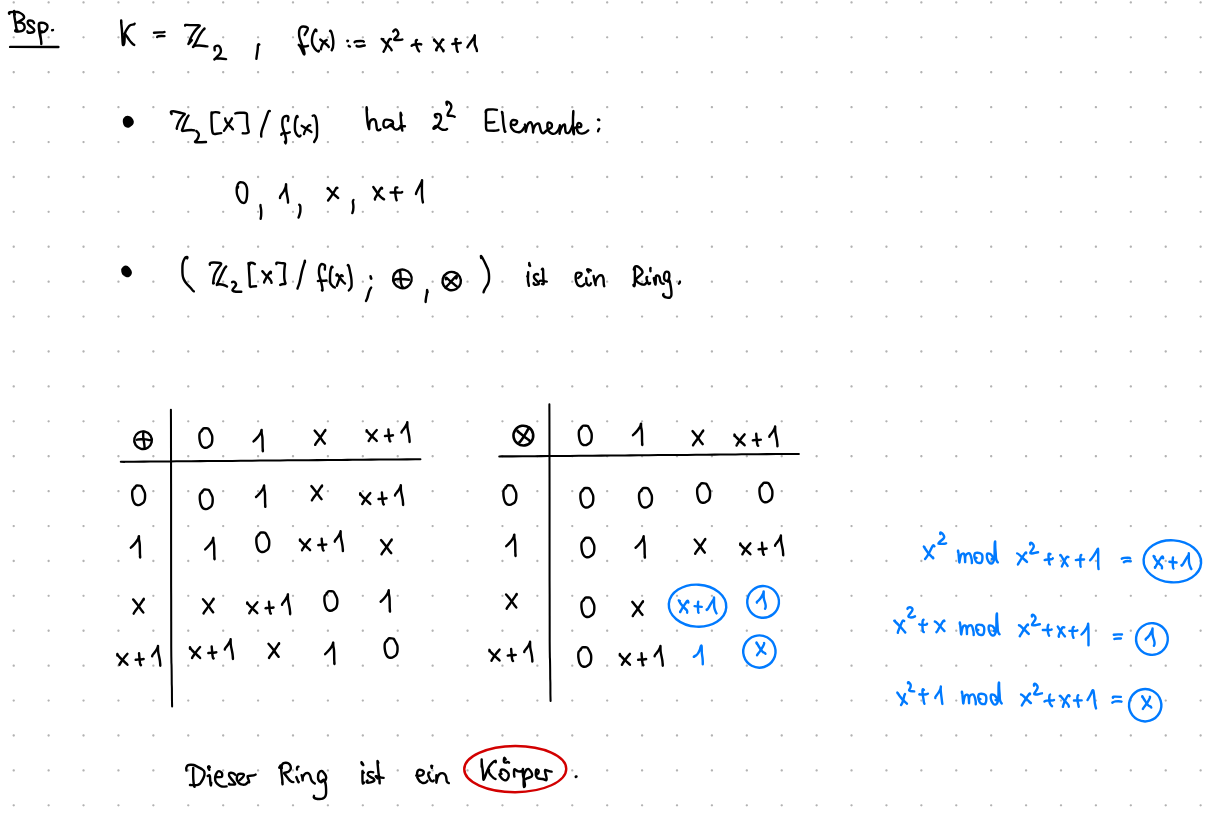 Bsp. K = ℤ₂ , f(x) := x² + x + 1
• ℤ₂[x] / f(x) hat 2² Elemente:
0, 1, x, x+1
• ( ℤ₂[x] / f(x) ; ⊕ , ⊗ ) ist ein Ring.
⊕ | 0 1 x x+1
0 | 0 1 x x+1
1 | 1 0 x+1 x
x | x x+1 0 1
x+1 | x+1 x 1 0
⊗ | 0 1 x x+1
0 | 0 0 0 0
1 | 0 1 x x+1
x | 0 x x+1 1
x+1 | 0 x+1 1 x
x² mod x²+x+1 = x+1
x²+x mod x²+x+1 = 1
x²+1 mod x²+x+1 = x
Dieser Ring ist ein Körper.